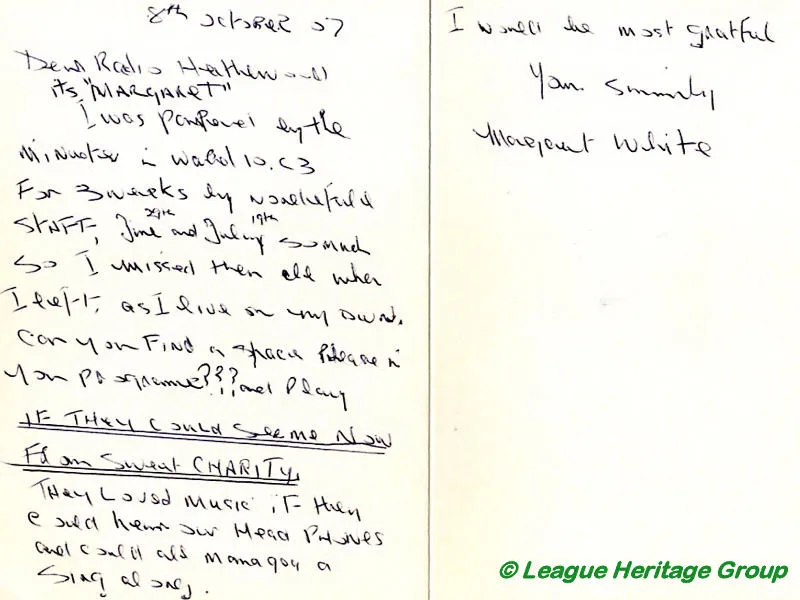 8th October 07
Dear Radio Heatherwood
its "MARGARET"
I was pampered by the
Minute in Ward 10. C3
For 3 weeks by wonderful
STAFF, June 29th and July 19th so much
So I missed them all when
I left, as I live on my own.
Can you Find a space Please in
your Programme??? and Play
IF THEY COULD See me Now
From Sweet CHARITY.
THEY Loved Music, if they
could hear our Head Phones
and could all manage a
Sing along.
I would be most grateful
Yours Sincerely
Margaret White
© League Heritage Group